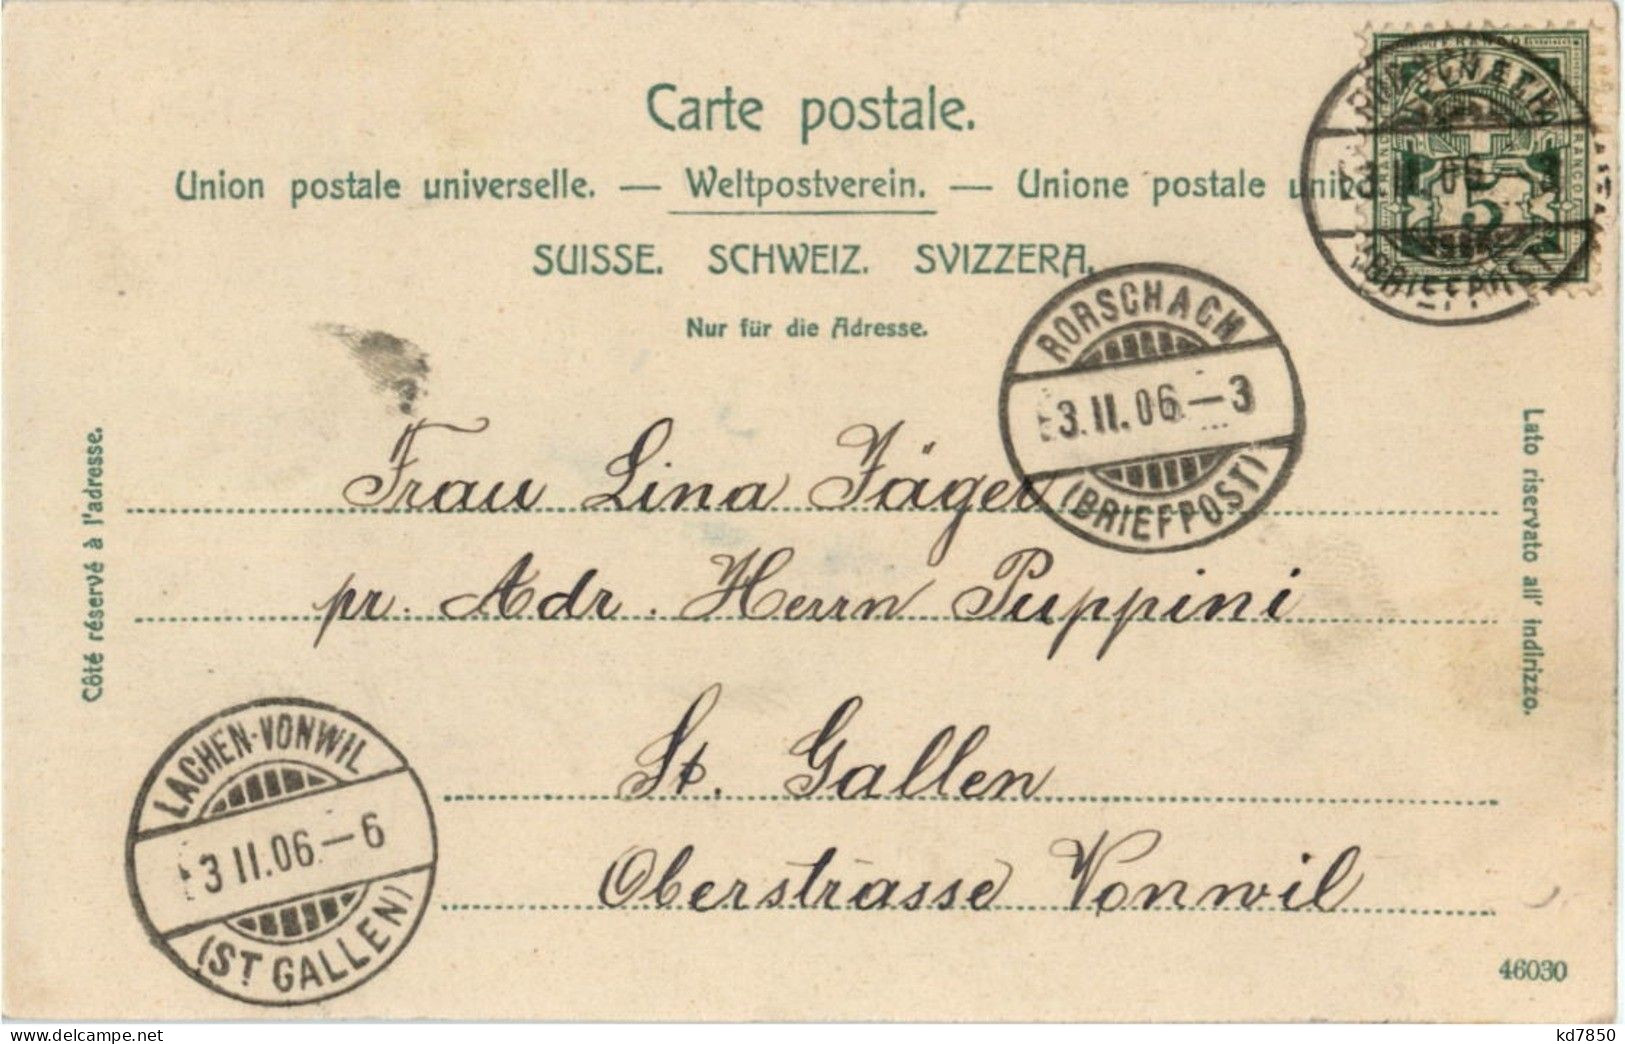 Carte postale.
Union postale universelle. — Weltpostverein. — Unione postale
SUISSE. SCHWEIZ. SVIZZERA.
Nur für die Adresse.
FRANCO
5
(BRIEFPOST)
RORSCHACH
3.II.06.–3
(BRIEFPOST)
Côté réservé à l'adresse.
Lato riservato all' indirizzo.
Frau Lina Jäger
pr. Adr. Herrn Puppini
St. Gallen
Oberstrasse Vonwil
LACHEN-VONWIL
3 II.06.–6
(ST GALLEN)
46030
www.delcampe.net
kd7850